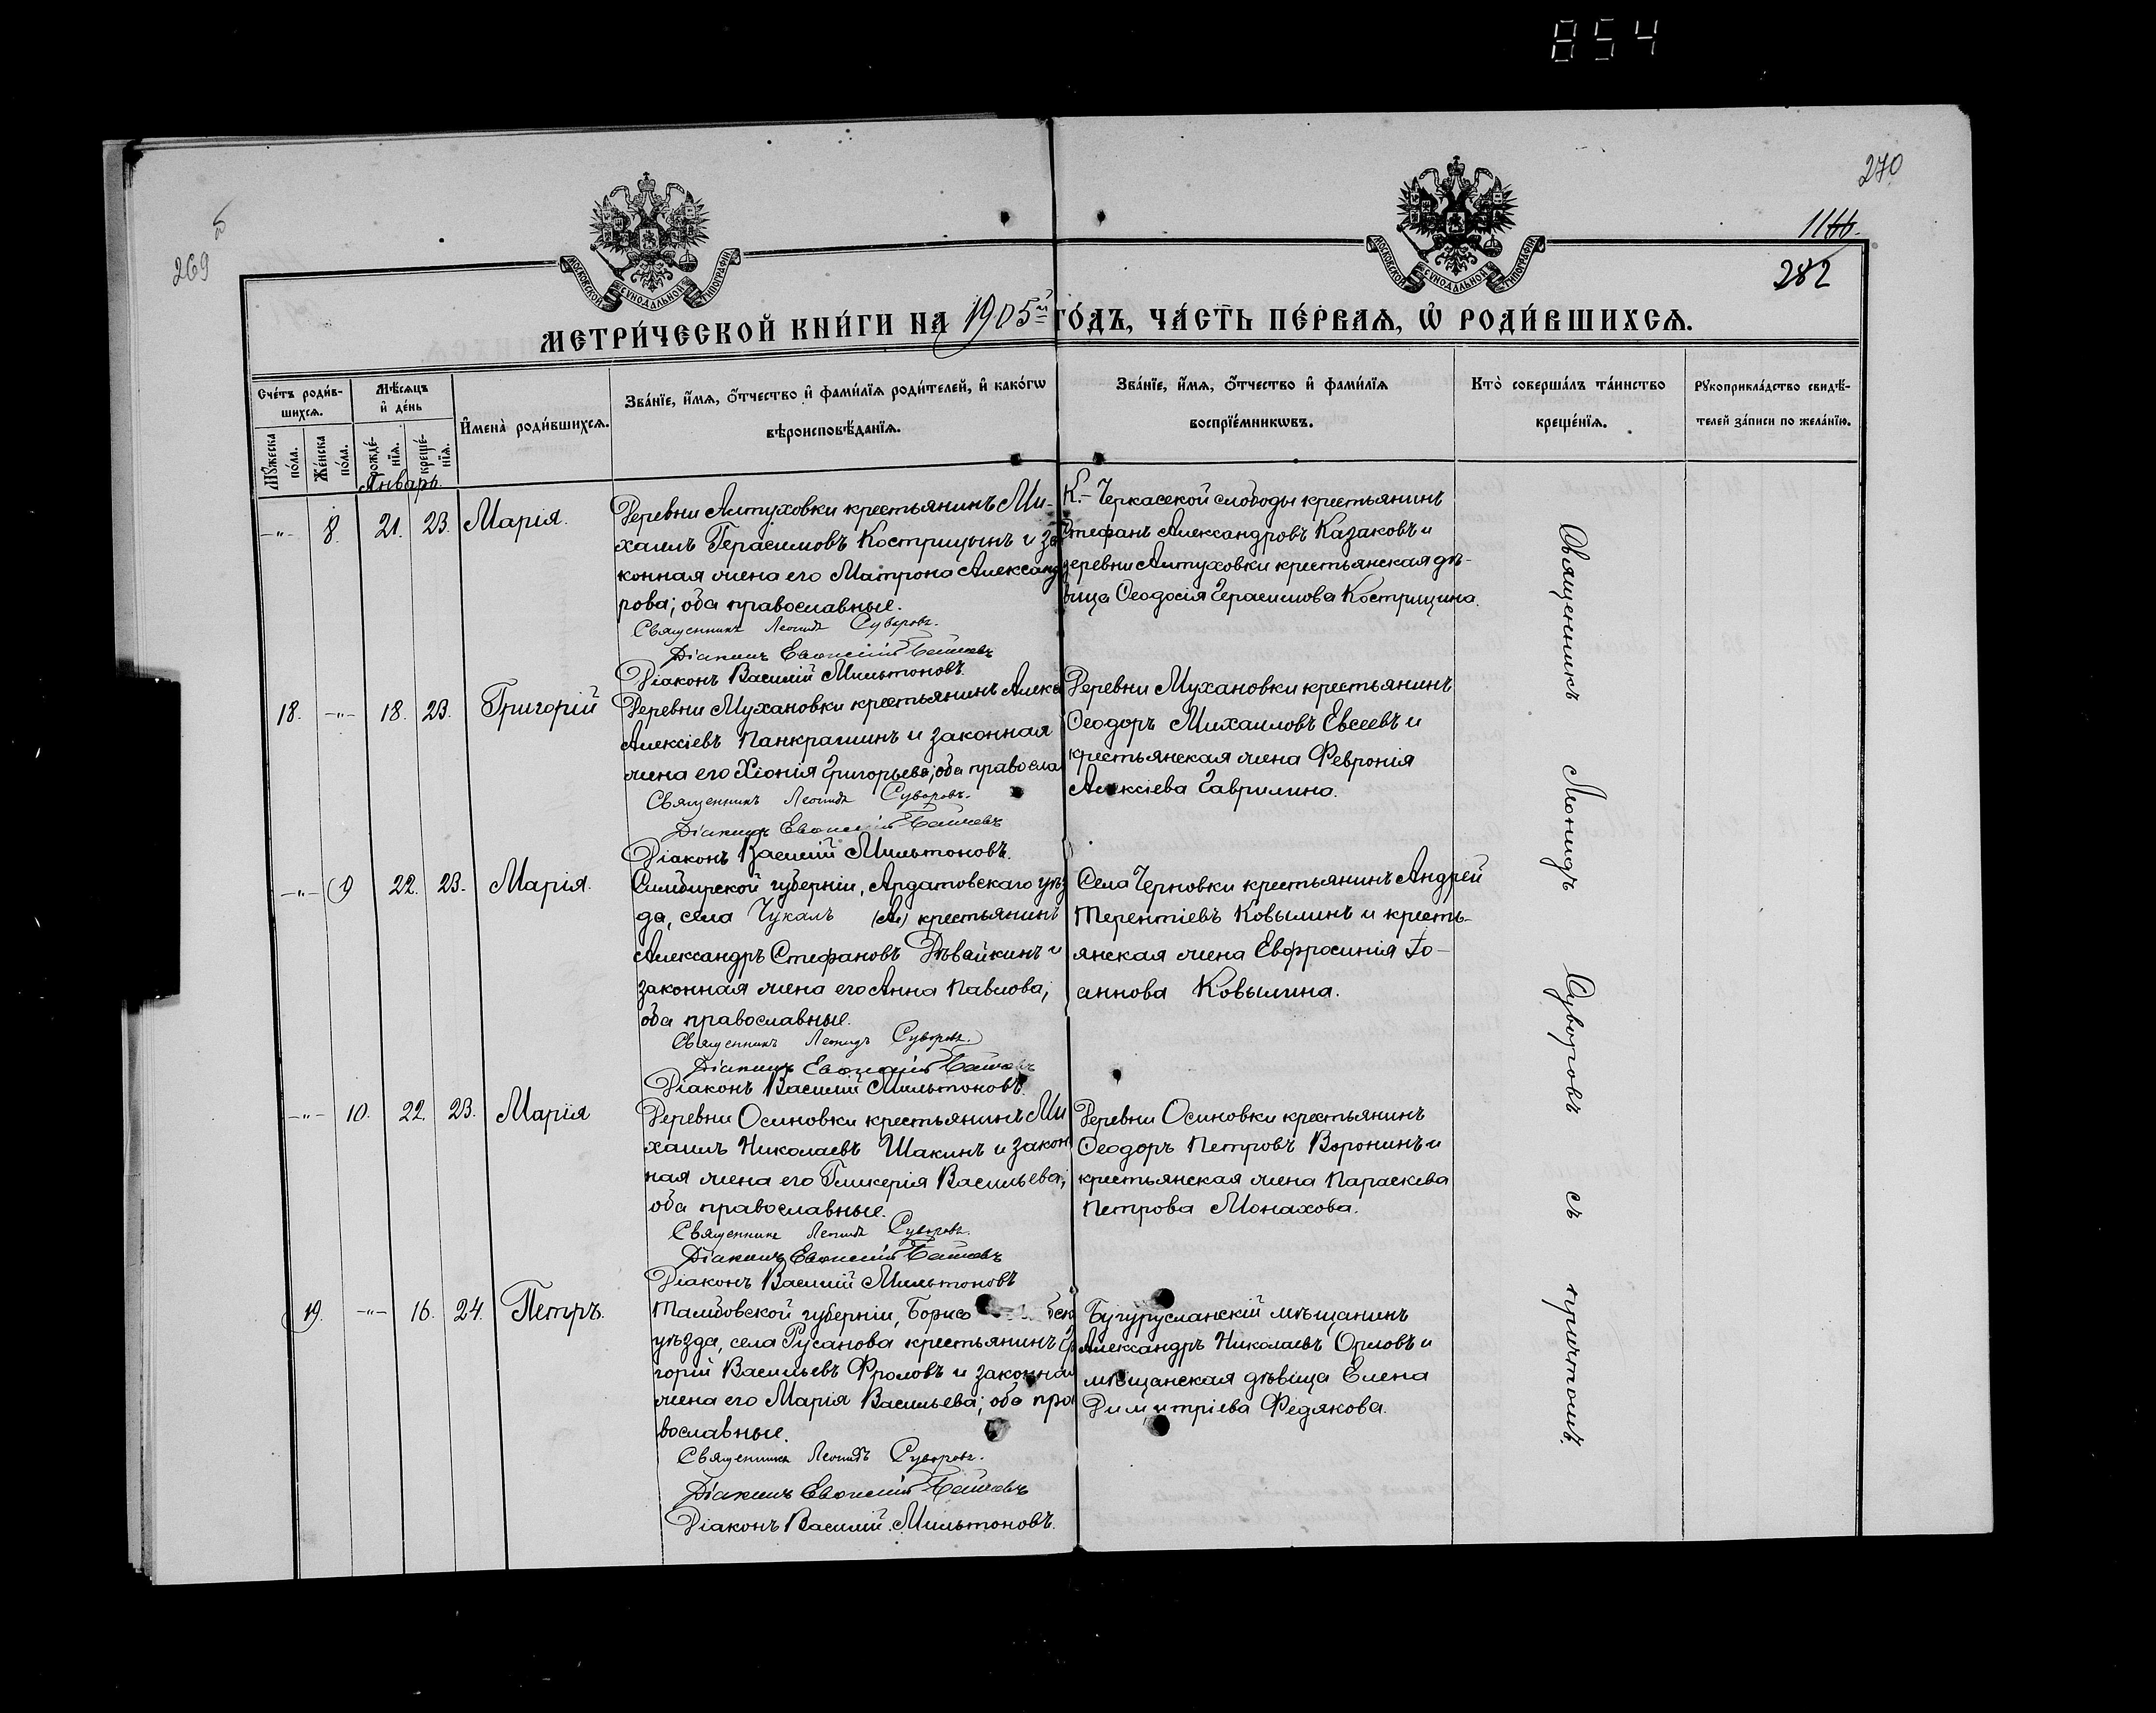 854
270
1166.
269
282
МОСКОВСКОЙ СУНОДАЛЬНОЙ ТИПОГРАФІИ
МОСКОВСКОЙ СУНОДАЛЬНОЙ ТИПОГРАФІИ
МЕТРИ́ЧЕСКОЙ КНИ́ГИ НА 1905й ГО́ДЪ, ЧА́СТЬ ПЕ́РВАѦ, Ѡ҆ РОДИ́ВШИХСѦ.
Сче́тъ роди́в-
шихсѧ.
Мѣ́сѧцъ
и҆ де́нь
И҆мена̀ роди́вшихсѧ.
Зва́нїе, и҆́мѧ, ѻ҆́тчество и҆ фами́лїѧ роди́телей, и҆ како́гѡ
вѣроисповѣ́данїѧ.
Зва́нїе, и҆́мѧ, ѻ҆́тчество и҆ фами́лїѧ
воспрїе́мникѡвъ.
Кто̀ соверша́лъ та́инство
креще́нїѧ.
Рꙋкоприкла́дство свидѣ́-
телей за́писи по жела́нїю.
Мꙋ́жеска
по́ла.
Же́нска
по́ла.
рожде́-
нїѧ.
креще́-
нїѧ.
Январь.
-"- 8. 21. 23. Марія.
Деревни Алтуховки крестьянинъ Ми-
хаилъ Герасимовъ Кострицынъ и за
конная жена его Матрона Александ
рова; оба православные.
Священникъ Леонидъ Суворовъ.
Діаконъ Евѳимій
Діаконъ Василій Мильтоновъ.
К.- Черкасской слободы крестьянинъ
Стефанъ Александровъ Казаковъ и
деревни Алтуховки крестьянская дѣ-
вица Ѳеодосія Герасимова Кострицина.
18. -"- 18. 23. Григорій
Деревни Мухановки крестьянинъ Алекс
Алексіевъ Панкратинъ и законная
жена его Хіонія Григорьева; оба правосла
Священникъ Леонидъ Суворовъ.
Діаконъ Евѳимій
Діаконъ Василій Мильтоновъ.
Деревни Мухановки крестьянинъ
Ѳеодоръ Михаиловъ Евсеевъ и
крестьянская жена Февронія
Алексіева Гаврилина.
-"- 9 22. 23. Марія.
Симбирской губерніи, Ардатовскаго уѣз
да, села Чукалъ (А) крестьянинъ
Александръ Стефановъ Дѣвайкинъ и
законная жена его Анна Павлова;
оба православные.
Священникъ Леонидъ Суворовъ.
Діаконъ Евѳимій
Діаконъ Василій Мильтоновъ.
Села Черновки крестьянинъ Андрей
Терентіевъ Ковылинъ и кресть-
янская жена Евфросинія Іо-
аннова Ковылина.
-"- 10. 22. 23. Марія
Деревни Осиновки крестьянинъ Ми
хаилъ Николаевъ Шакинъ и закон
ная жена его Гликерія Васильева;
оба православные.
Священникъ Леонидъ Суворовъ.
Діаконъ Евѳимій
Діаконъ Василій Мильтоновъ
Деревни Осиновки крестьянинъ
Ѳеодоръ Петровъ Воронинъ и
крестьянская жена Параскева
Петрова Монахова.
19. -"- 16. 24. Петръ.
Тамбовской губерніи, Борисо
уѣзда, села Русанова крестьянинъ Гр
горій Васильевъ Фроловъ и законная
жена его Марія Васильева; оба пра
вославные.
Священникъ Леонидъ Суворовъ.
Діаконъ Евѳимій
Діаконъ Василій Мильтоновъ.
Бугурусланскій мѣщанинъ
Александръ Николаевъ Орловъ и
мѣщанская дѣвица Елена
Димитріева Федякова.
Священникъ Леонидъ Суворовъ съ причтомъ.